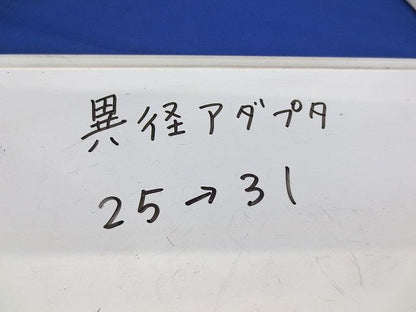 異径アダプタ
25→31